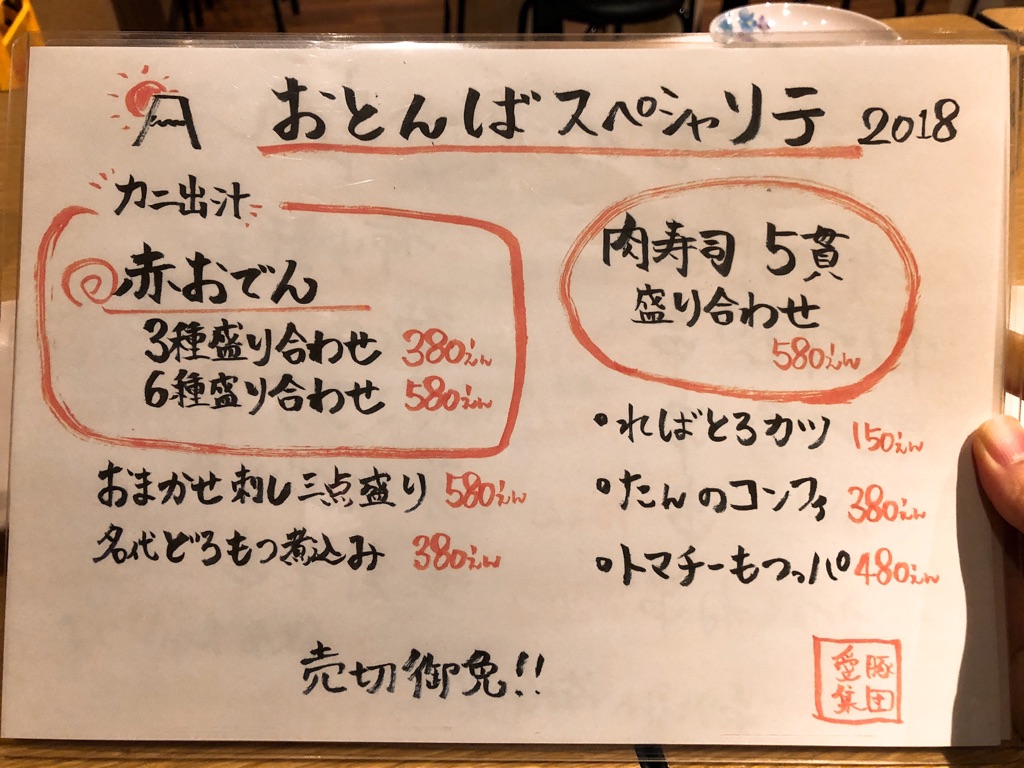 おとんばスペシャリテ 2018
カニ出汁
赤おでん
3種盛り合わせ 380えん
6種盛り合わせ 580えん
おまかせ刺し三点盛り 580えん
名代どろもつ煮込み 380えん
肉寿司 5貫
盛り合わせ
580えん
・ればとろカツ 150えん
・たんのコンフィ 380えん
・トマチーもつっパ 480えん
売切御免!!
愛豚
集団